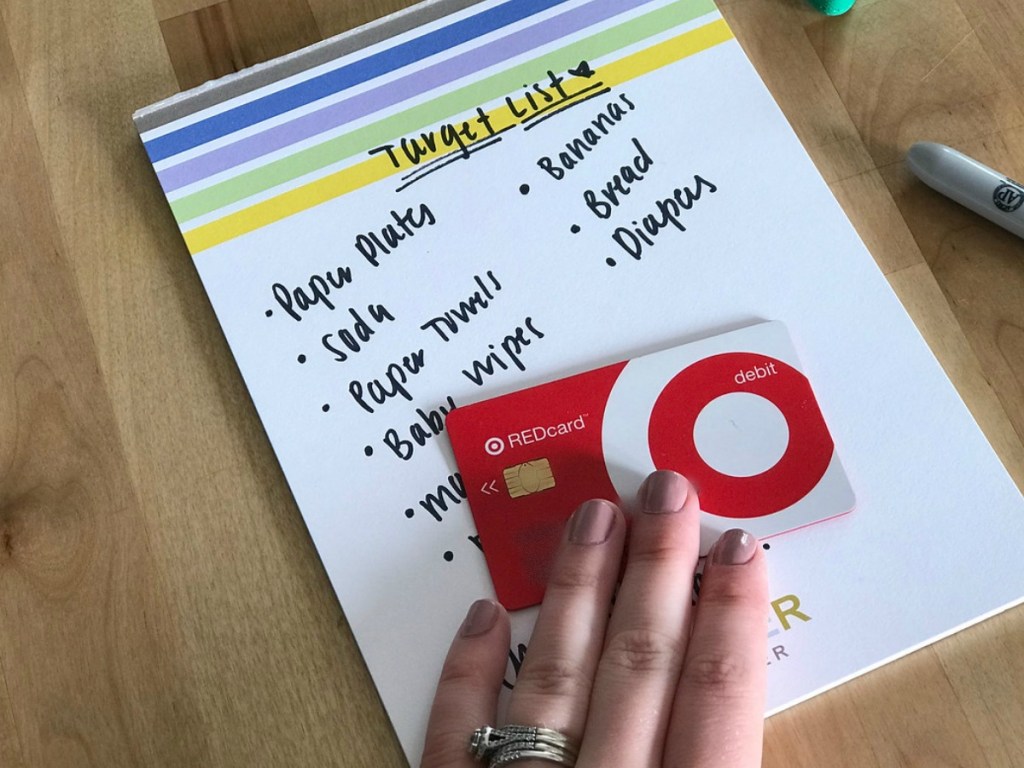 Target List
• Paper Plates
• Soda
• Paper Towels
• Baby wipes
• Bananas
• Bread
• Diapers
REDcard™
debit